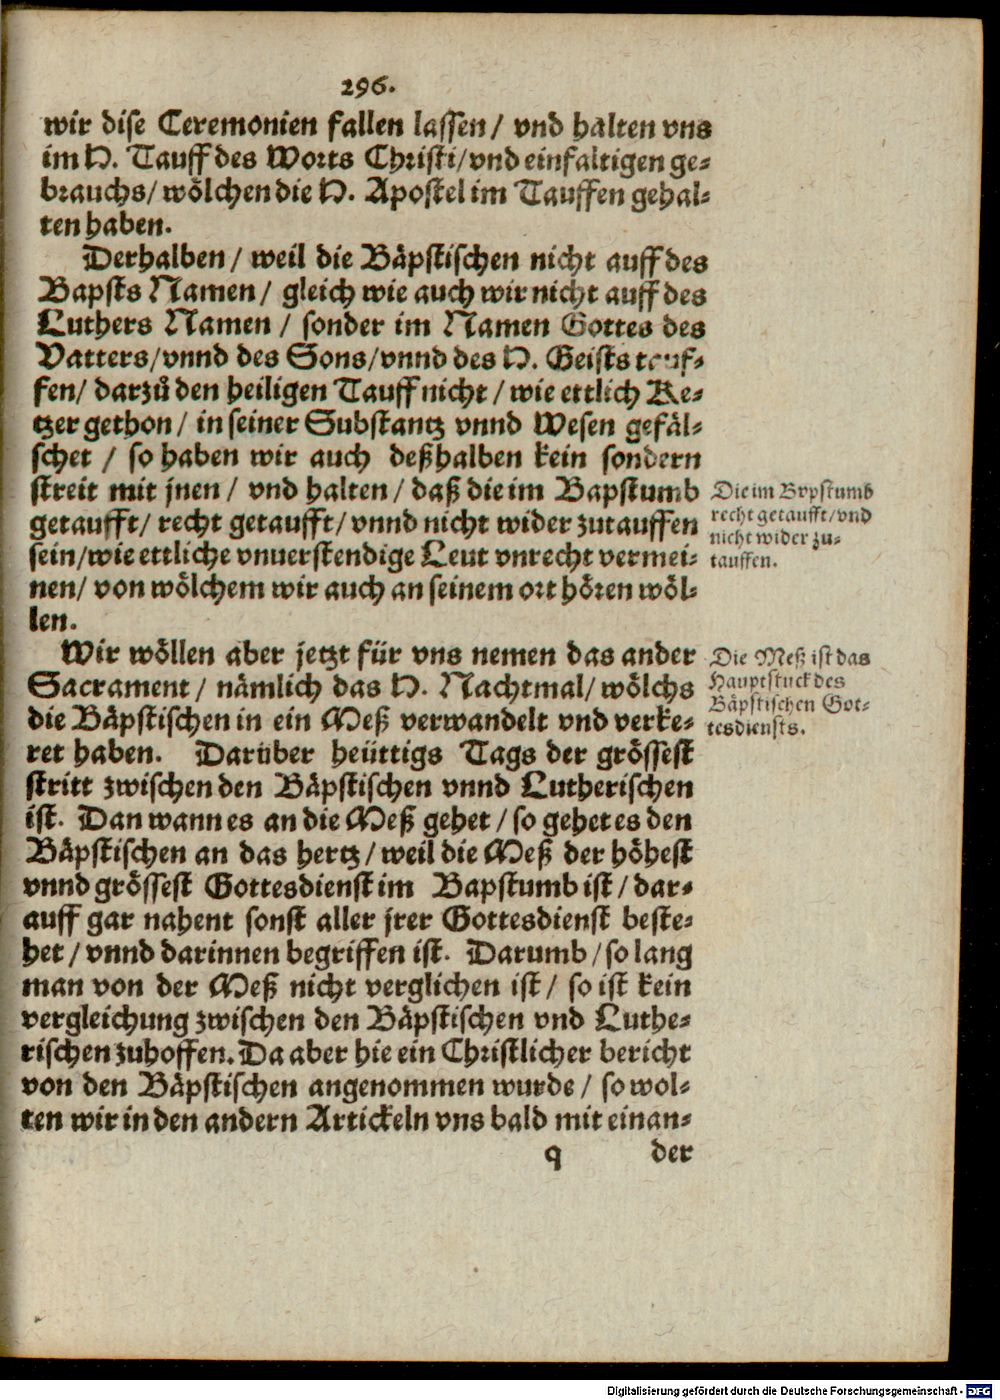 296.
wir dise Ceremonien fallen lassen / vnd halten vns
im H. Tauff des Worts Christi / vnd einfaltigen ge-
brauchs / wölchen die H. Apostel im Tauffen gehal-
ten haben.
Derhalben / weil die Bäpstischen nicht auff des
Bapsts Namen / gleich wie auch wir nicht auff des
Luthers Namen / sonder im Namen Gottes des
Vatters / vnnd des Sons / vnnd des H. Geists tauf-
fen / darzů den heiligen Tauff nicht / wie ettlich Ke-
tzer gethon / in seiner Substantz vnnd Wesen gefäl-
schet / so haben wir auch deßhalben kein sondern
streit mit jnen / vnd halten / daß die im Bapstumb
getaufft / recht getaufft / vnnd nicht wider zutauffen
sein / wie ettliche vnuerstendige Leut vnrecht vermei-
nen / von wölchem wir auch an seinem ort hören wöl-
len.
Die im Bapstumb
recht getaufft / vnd
nicht wider zu-
tauffen.
Wir wöllen aber jetzt für vns nemen das ander
Sacrament / nämlich das H. Nachtmal / wölchs
die Bäpstischen in ein Meß verwandelt vnd verke-
ret haben. Darüber heüttigs Tags der grössest
stritt zwischen den Bäpstischen vnnd Lutherischen
ist. Dan wann es an die Meß gehet / so gehet es den
Bäpstischen an das hertz / weil die Meß der höhest
vnnd grössest Gottesdienst im Bapstumb ist / dar-
auff gar nahent sonst aller jrer Gottesdienst beste-
het / vnnd darinnen begriffen ist. Darumb / so lang
man von der Meß nicht verglichen ist / so ist kein
vergleichung zwischen den Bäpstischen vnd Luthe-
rischen zuhoffen. Da aber hie ein Christlicher bericht
von den Bäpstischen angenommen wurde / so wol-
ten wir in den andern Artickeln vns bald mit einan-
Die Meß ist das
Hauptstuck des
Bäpstischen Got-
tesdiensts.
q der
Digitalisierung gefördert durch die Deutsche Forschungsgemeinschaft - DFG